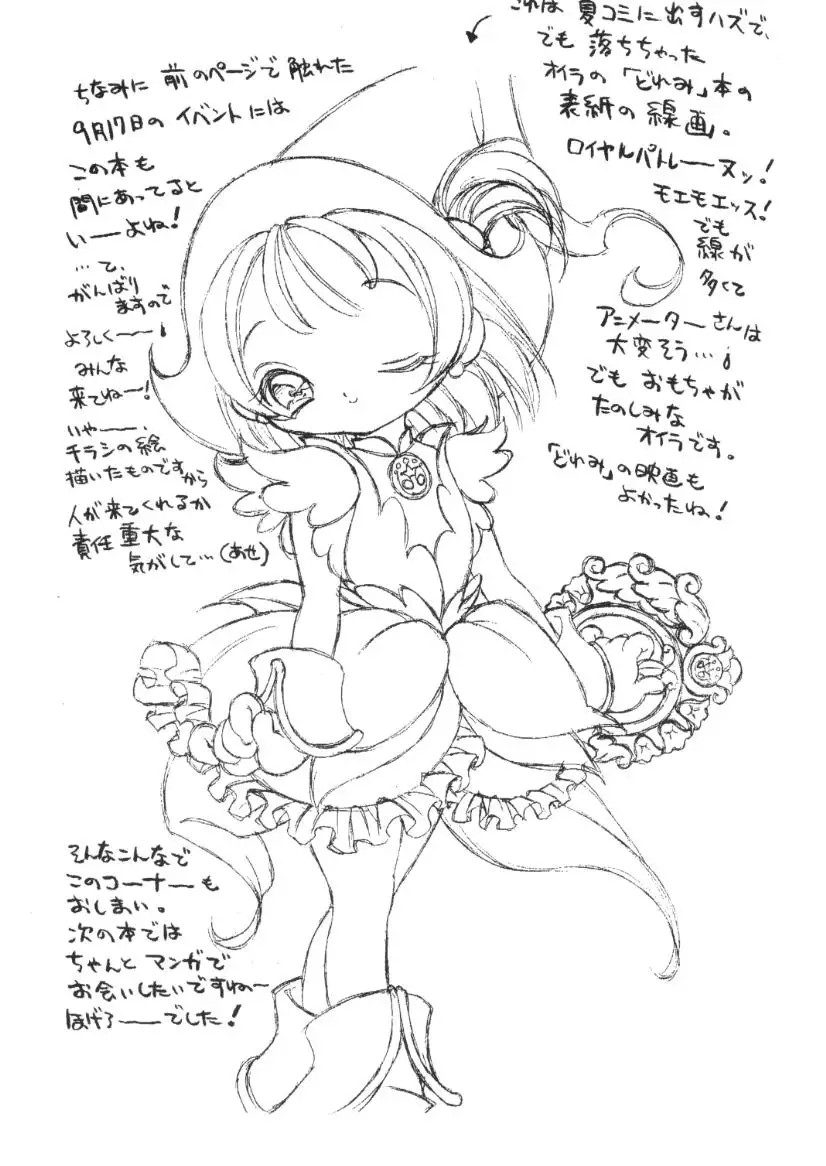 これは 夏コミに出すハズで、
でも 落ちちゃった
オイラの「どれみ」本の
表紙の 線画。
ロイヤルパトレーヌッ!
モエモエッス!
でも
線が
多くて
アニメーターさんは
大変そう…
でも おもちゃが
たのしみな
オイラです。
「どれみ」の映画も
よかったね!
ちなみに 前のページで 触れた
9月17日の イベントには
この本も
間にあってると
いーよね!
…て、
がんばり
ますので
よろしくーー!
みんな
来てねー!
いやー、
チラシの絵
描いたものですから
人が来てくれるか
責任重大な
気がして…(あせ)
そんなこんなで
このコーナーも
おしまい。
次の本では
ちゃんと マンガで
お会いしたいですね〜
ほげろーーでした!